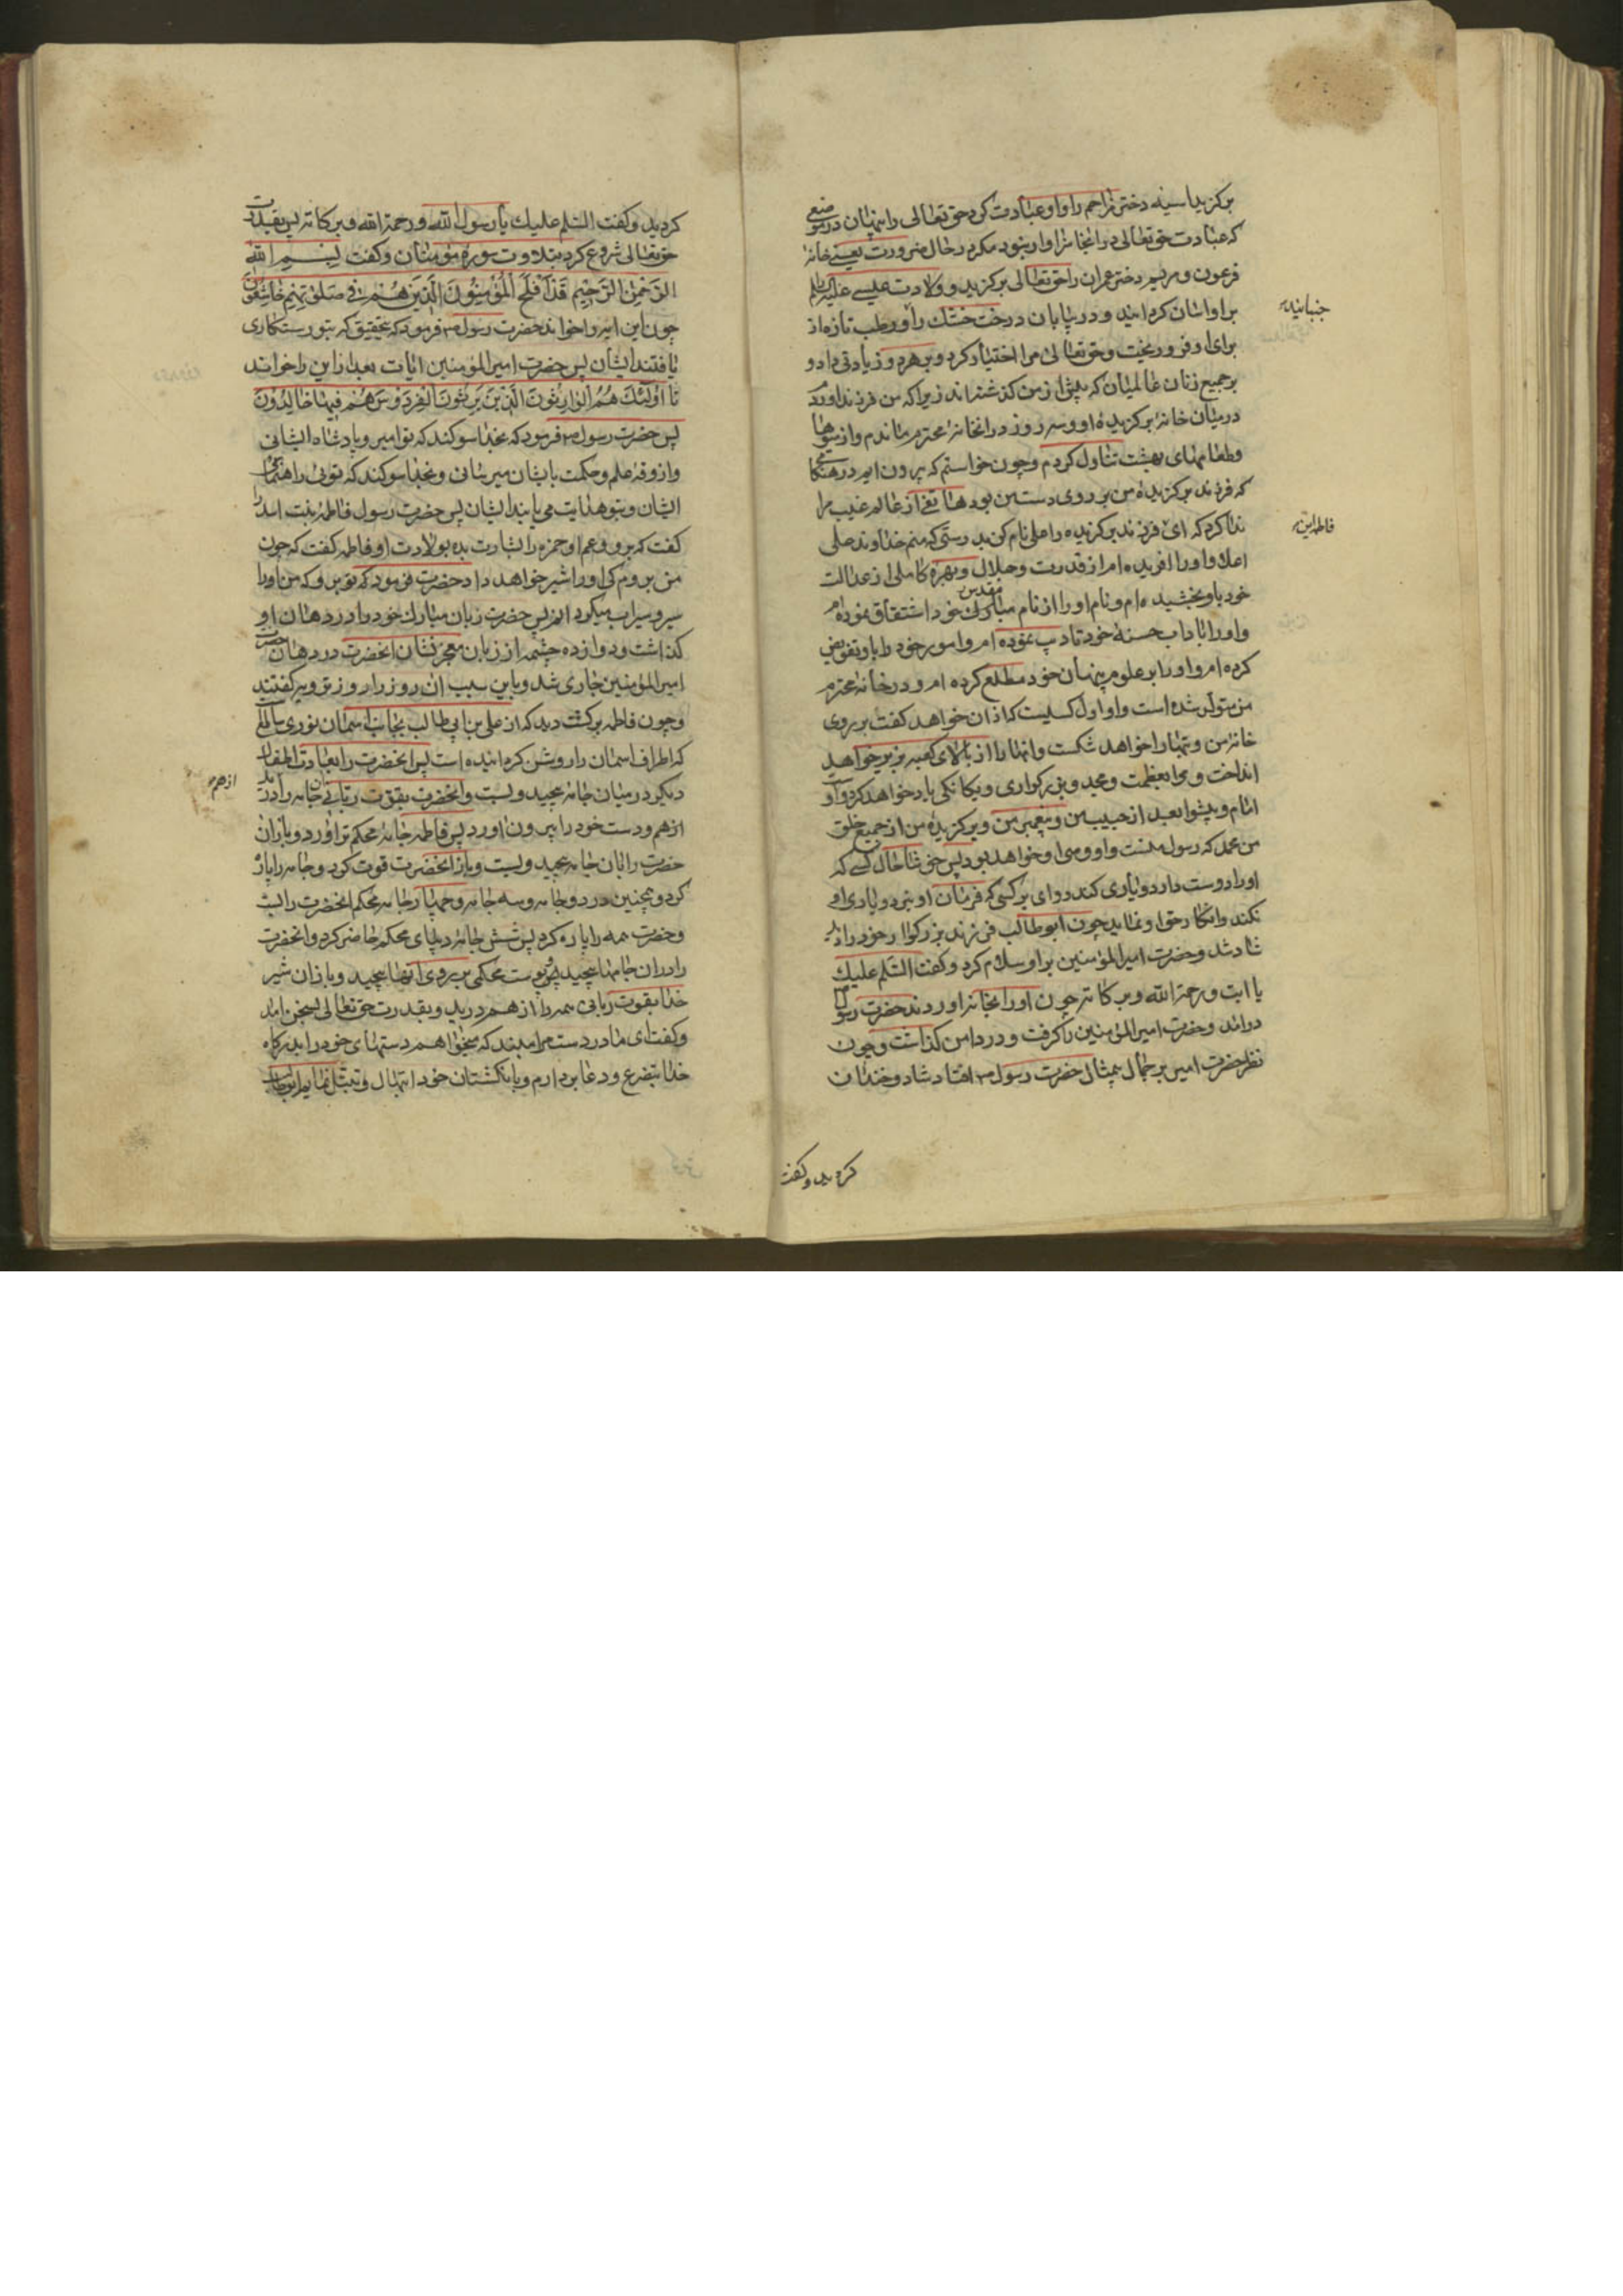 برکزید اسیه دختر مزاحم را و او عبادت کرد حق تعالی را پنهان در موضعی
که عبادت حق تعالی در انجا سزاوار نبود مکر در حال ضرورت یعنی خانه
فرعون و مریم دختر عمران را حق تعالی برکزید و ولادت عیسی علیه السلم
بر او اسان کردانید و در بیابان درخت خشک را و رطب تازه از
جنبانیده
برای او فرو ریخت و حق تعالی مرا اختیار کرد و بر هر دو زیادتی داد و
بر جمیع زنان عالمیان که پیش از من کذشته اند زیرا که من فرزند اورد
در میان خانه برکزیده او و سه روز در انخانه محترم ماندم و از میوها
و طعامهای بهشت تناول کردم و چون خواستم که بیرون ایم در هنکامی
که فرزند برکزیده من بر روی دست من بود هاتفی از عالم غیب مرا
ندا کرد که ای فرزند برکزیده را علی نام کن بدرستی که منم خداوند علی
فاطمه این
اعلا و او را افریده ام از قدرت و جلال و بهره کاملی از عدالت
خود باو بخشیده ام و نام او را از نام مبارک خود اشتقاق نموده ام
مقدس
و او را باداب حسنه خود تادیب نموده ام و امور خود را باو تفویض
کرده ام و او را بر علوم پنهان خود مطلع کرده ام و در خانه محترم
من متولد شده است و او اول کسیست که اذان خواهد کفت بر روی
خانه من و بتها را خواهد شکست و انها را از بالای کعبه بزیر خواهد
انداخت و مرا بعظمت و مجد و بزرکواری و یکانکی یاد خواهد کرد و اوست
امام و پیشوا بعد از حبیب من و پیغمبر من و برکزیده من از جمیع خلق
من محمد که رسول منست و او وصی او خواهد بود پس خوشا حال کسی که
او را دوست دارد و یاری کند و وای بر کسی که فرمان او نبرد و یاری او
نکند و انکار حق او نماید چون ابوطالب فرزند بزرکوار خود را دید
شاد شد و حضرت امیرالمؤمنین بر او سلام کرد و کفت السلم علیک
یا ابت و رحمة الله و برکاته چون او را بخانه اوردند حضرت رسول
درامد و حضرت امیرالمؤمنین را کرفت و در دامن کذاشت و چون
نظر حضرت امیر بر جمال بیمثال حضرت رسول افتاد شاد و خندان
کردید و کفت
کردید و کفت السلم علیک یا رسول الله و رحمة الله و برکاته پس بقدرت
حق تعالی شروع کرد بتلاوت سوره مؤمنان و کفت بسم الله
الرحمن الرحیم قد افلح المؤمنون الذین هم فی صلوتهم خاشعون
چون این ایه را خواند حضرت رسول فرمود که بتحقیق که بتو رستکاری
یافتند ایشان پس حضرت امیرالمؤمنین ایات بعد از این را خواند
تا اولئک هم الوارثون الذین یرثون الفردوس هم فیها خالدون
پس حضرت رسول فرمود که بخدا سوکند که تو امیر و پادشاه ایشانی
و ازوقه علم و حکمت بایشان میرسانی و بخدا سوکند که توئی راهنمای
ایشان و بتو هدایت می یابند ایشان پس حضرت رسول فاطمه بنت اسد را
کفت که برو و عم او حمزه را بشارت بده بولادت او فاطمه کفت که چون
من بروم کی او را شیر خواهد داد حضرت فرمود که تو برو که من او را
سیر و سیراب میکردانم پس حضرت زبان مبارک خود را در دهان او
کذاشت و دوازده چشمه از زبان معجزنشان انحضرت در دهان حضرت
امیرالمؤمنین جاری شد و باین سبب ان روز را روز ترویه کفتند
و چون فاطمه برکشت دید که از علی بن ابی طالب بجانب اسمان نوری ساطع
که اطراف اسمان را روشن کردانیده است پس انحضرت را بعادت اطفال
دیکر در میان جامه پیچید و بست و انحضرت بقوت ربانی ان جامه را درید
از هم
از هم و دست خود را بیرون اورد پس فاطمه جامه محکم تر اورد و باز ان
حضرت را بان جامه پیچید و بست و باز انحضرت قوت کرد و جامه را پاره
کرد و همچنین در دو جامه و سه جامه و چهار جامه محکم انحضرت را بست
و حضرت همه را پاره کرد پس شش جامه دیبای محکم حاضر کرد و انحضرت
را در ان جامها پیچید و پوست محکمی بر روی انها پیچید و باز ان شیر
خدا بقوت ربانی همه را از هم درید و بقدرت حق تعالی بسخن امد
و کفت ای مادر دست مرا مبند که میخواهم دستهای خود را بدرکاه
خدا بتضرع و دعا بردارم و بانکشتان خود ابتهال و تبتل نمایم ابوطالب